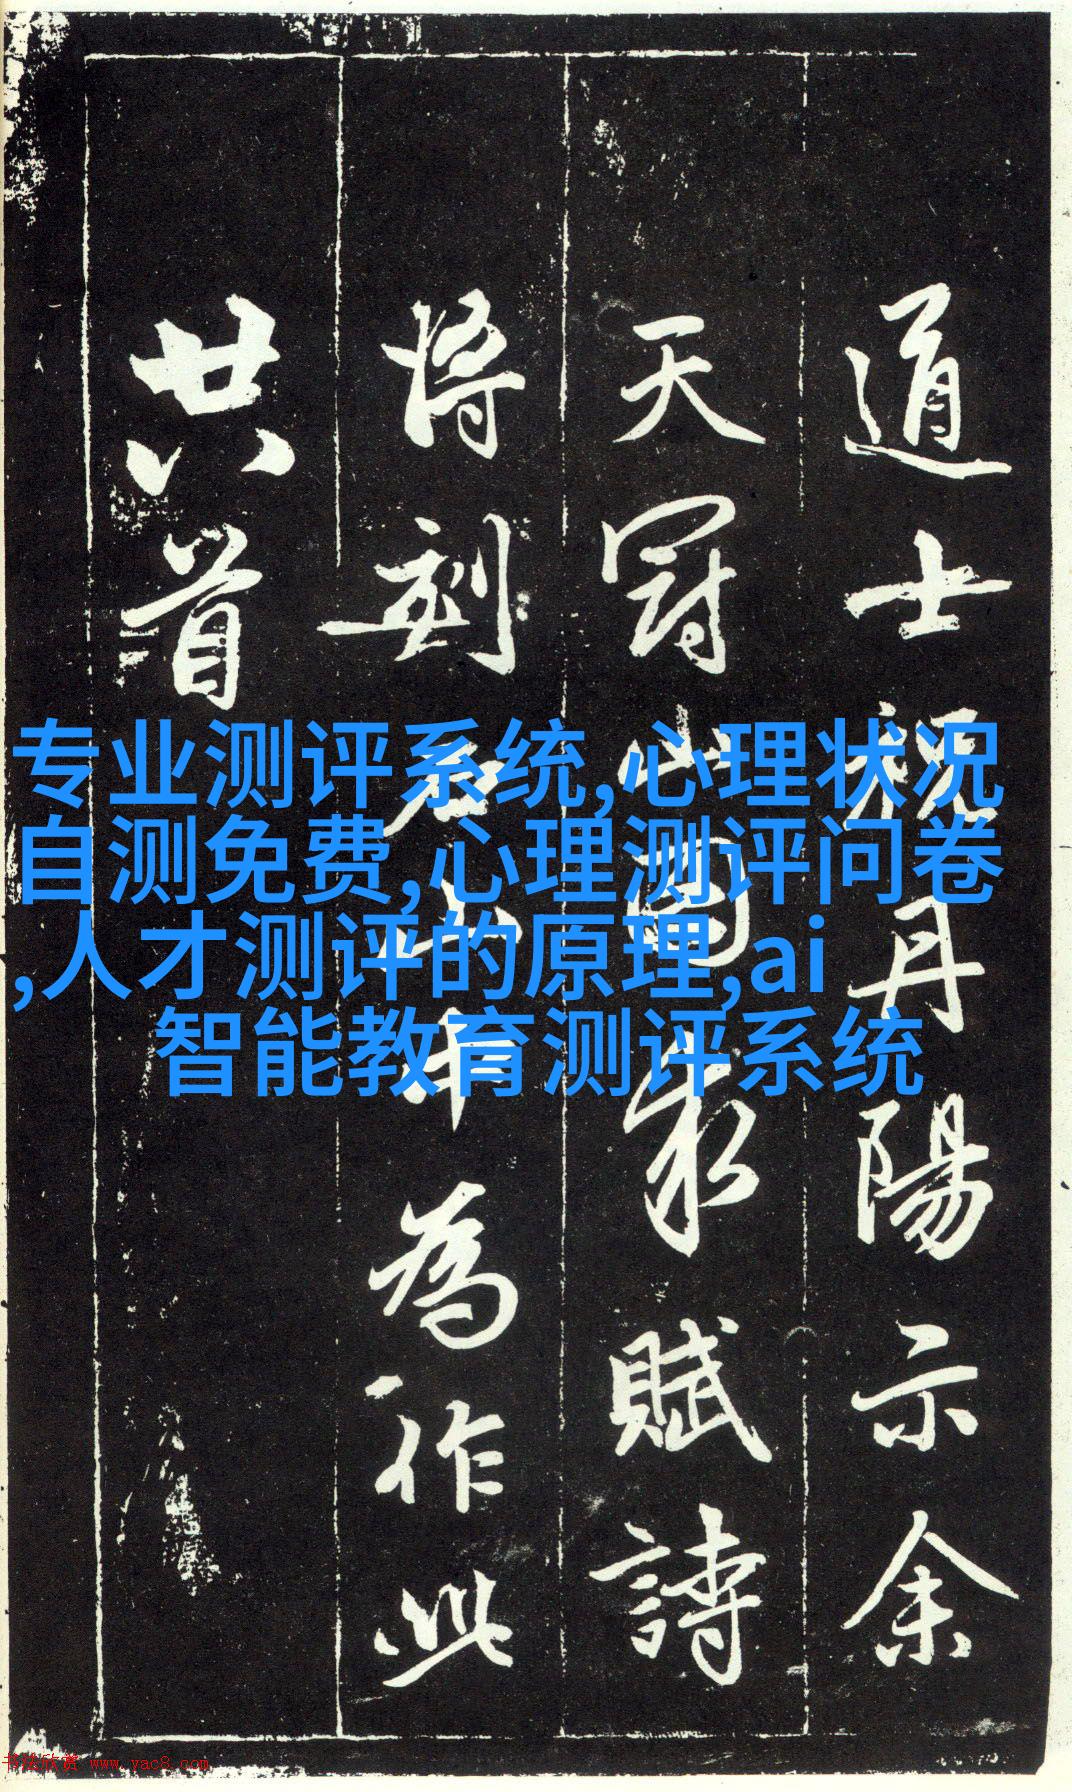 道士祝丹陽示余
天冠山圖求賦詩
將刻石山中為作此
廿八首
专业测评系统,心理状况
自测免费,心理测评问卷
,人才测评的原理,ai
智能教育测评系统
书法欣赏 www.yac8.com